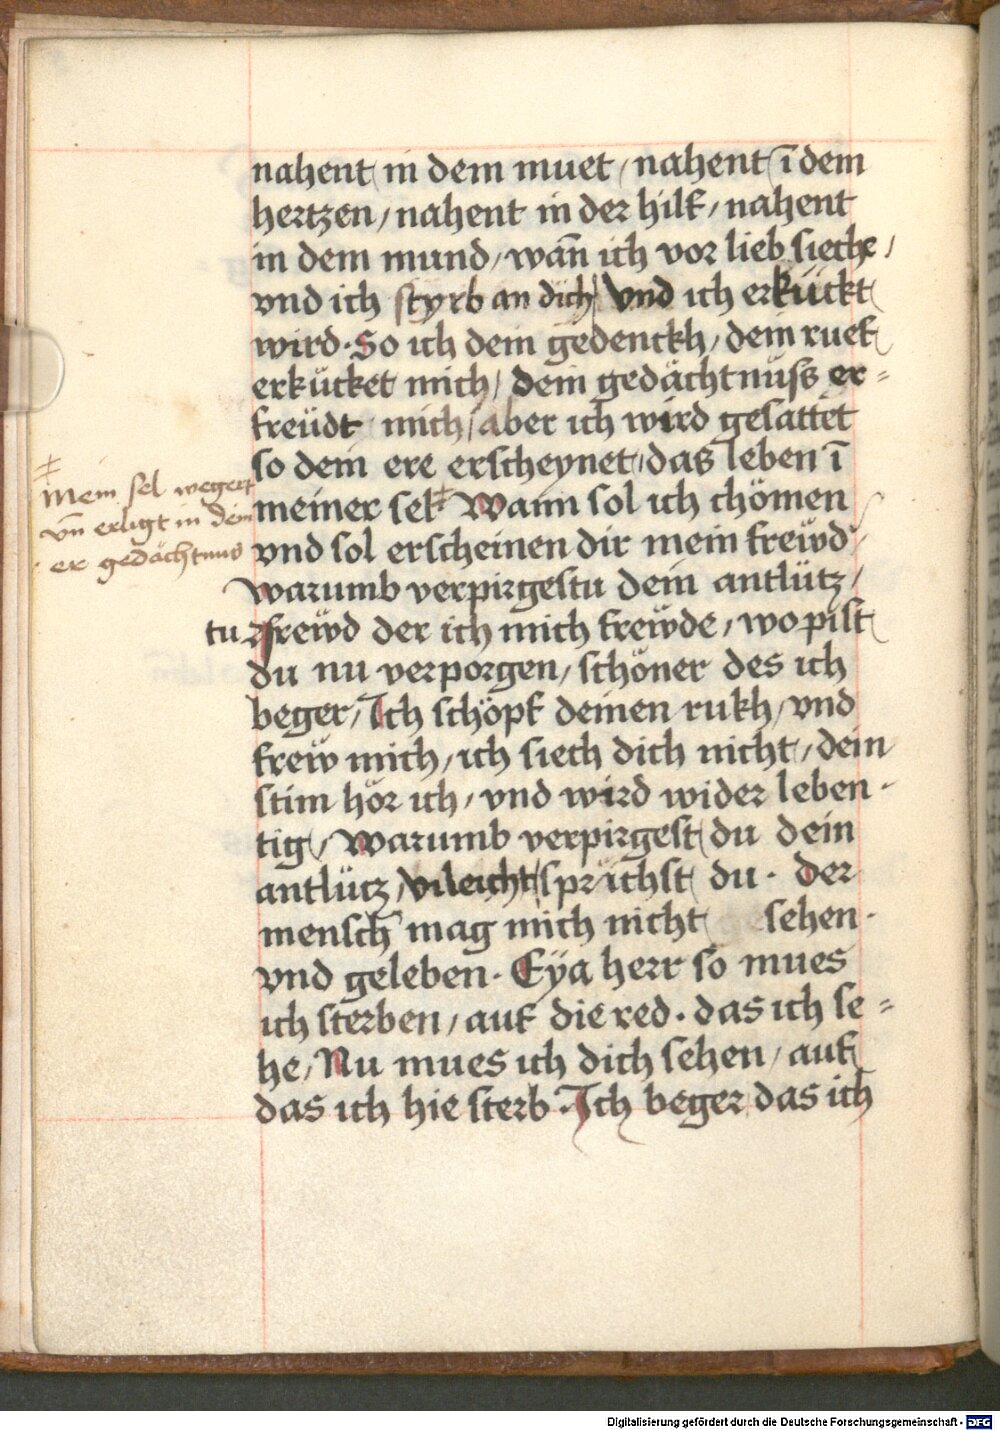 nahent in dem muet / nahent ī dem
hertzen / nahent in der hilf / nahent
in dem mund / wan̄ ich vor lieb sieche /
vnd ich styrb an dich / vnd ich erkückt
wird · So ich dein gedenckh / dein ruef
erkücket mich / dein gedächtnüss er=
freüdt mich / aber ich wird gesattet
so dein ere erscheynet / das leben ī
meiner sel ‡ Wann sol ich chömen
vnd sol erscheinen dir mein frewd /
warumb verpirgestu dein antlütz /
tu frewd der ich mich frewde / wo pist
du nu verporgen / schöner des ich
beger / Ich schöpf deinen rukh / vnd
frew mich / ich siech dich nicht / dein
stim hör ich / vnd wird wider leben ·
tig / Warumb verpirgest du dein
antlütz / vileicht sprichst du · der
mensch mag mich nicht sehen ·
vnd geleben · Eya herr so mues
ich sterben / auf die red · das ich se=
he / Nu mues ich dich sehen / auf
das ich hie sterb · Ich beger das ich
‡
Mein sel wegert
vn̄ erligt in dein
er gedächtnus
Digitalisierung gefördert durch die Deutsche Forschungsgemeinschaft - DFG